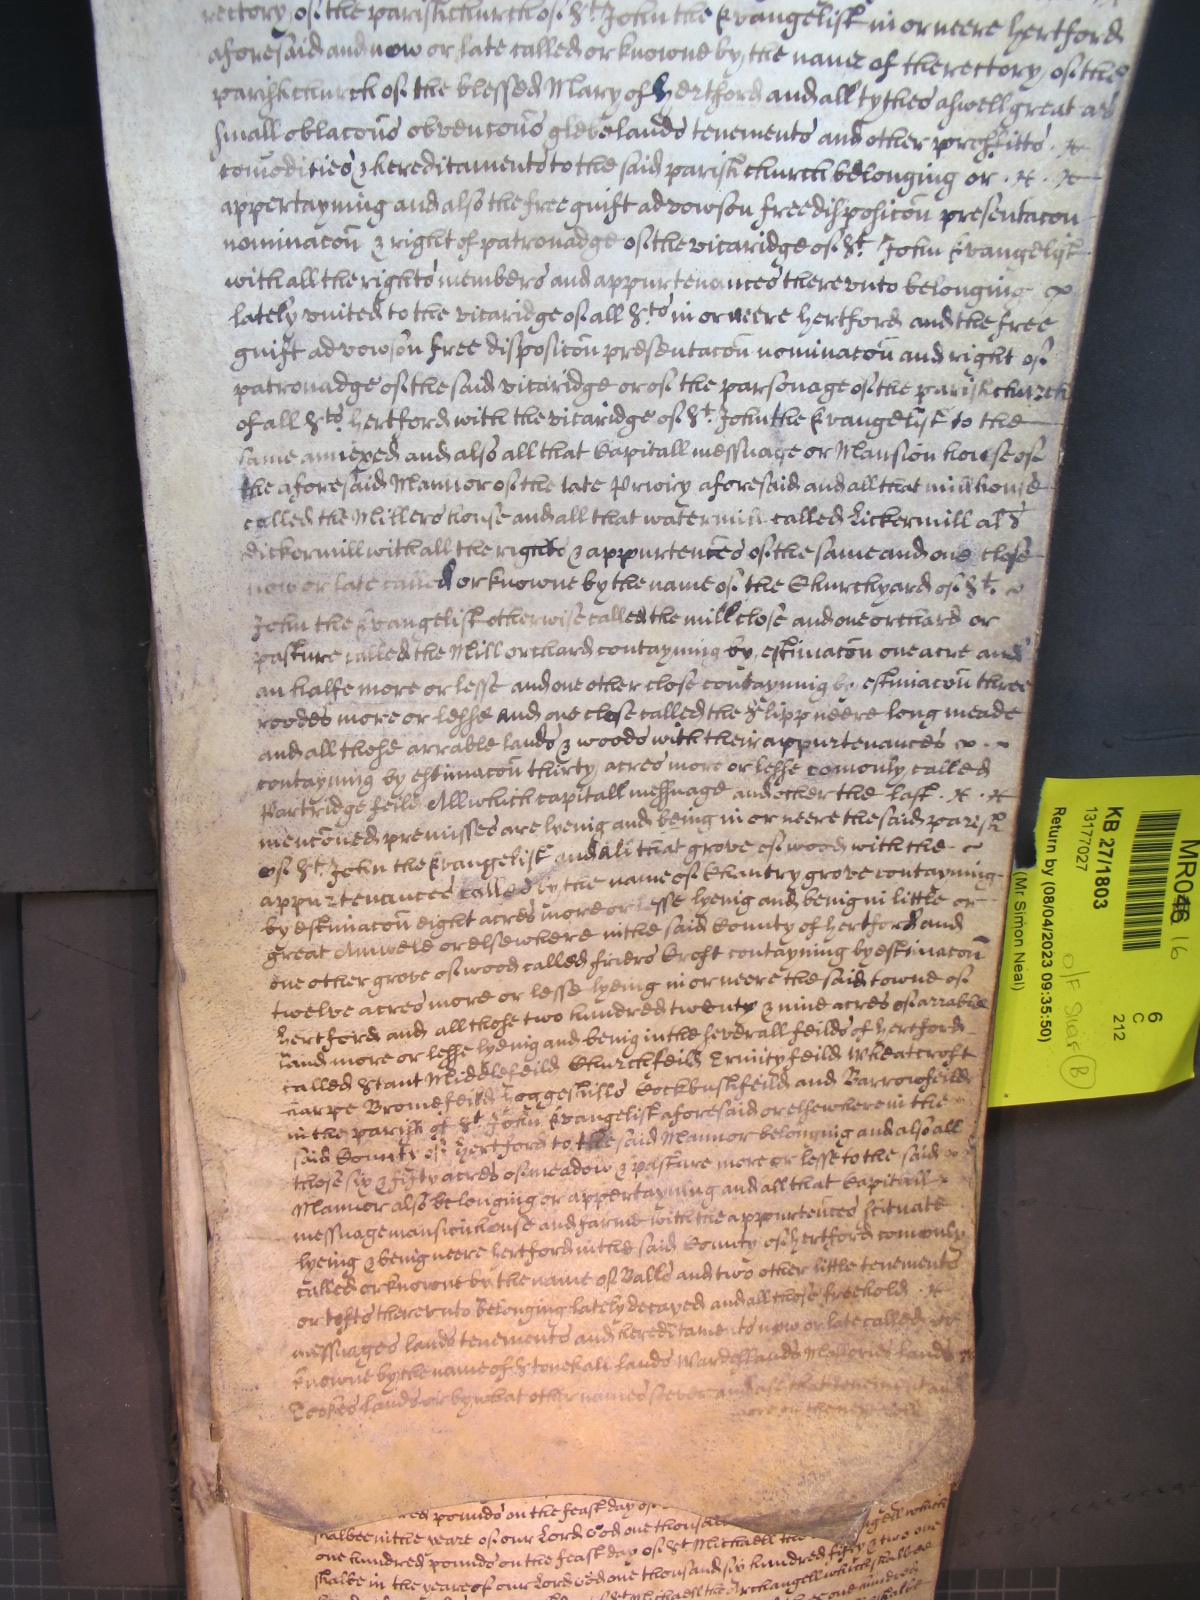 rectory of the parish church of St. John the Evangelist in or neere Hertford
aforesaid and now or late called or knowne by the name of the rectory of the
parish church of the blessed Mary of Hertford and all tythes aswell great as
small oblacons obvencons glebelands tenements and other proffitts
comodities & hereditaments to the said parish church belonging or
appertayning and also the free guift advowson free disposicon presentacon
nominacon & right of patronadge of the vicaridge of St. John Evangelist
with all the rights members and appurtenances therevnto belonging
lately vnited to the vicaridge of all Sts in or neere Hertford and the free
guift advowson free disposicon presentacon nominacon and right of
patronadge of the said vicaridge or of the parsonage of the parish church
of all Sts. Hertford with the vicaridge of St. John the Evangelist to the
same annexed and also all that Capitall messuage or Mansion house of
the aforesaid Mannor of the late Priory aforesaid and all that mill house
called the Millers house and all that watermill called Lickermill als
dickermill with all the rights & appurtences of the same and one close
now or late called or knowne by the name of the Churchyard of St.
John the Evangelist otherwise called the mill close and one orchard or
pasture called the Mill orchard contayning by estimacon one acre and
an halfe more or lesse and one other close contayning by estimacon three
roodes more or lesse and one close called the Slipp neere long meade
and all those arrable lands & woods with their appurtenances
contayning by estimacon thirty acres more or lesse comonly called
Partridge feild All which capitall messuage and other the last
menconed premisses are lyeing and being in or neere the said parish
of St. John the Evangelist and all that grove of wood with the
appurtenances called by the name of Chantry grove contayning
by estimacon eight acres more or lesse lyeing and being in little or
great Amwele or elsewhere in the said County of Hertford and
one other grove of wood called Friers Croft contayning by estimacon
twelve acres more or lesse lyeing in or neere the said towne of
Hertford and all those two hundred twenty & nine acres of arrable
land more or lesse lyeing and being in the severall feilds of Hertford
called Stant Middlefeild Churchfeild Trinity feild Wheatcroft
Bromefeild Hoggeshills Cockbushfeild and Barrowfeild
in the parish of St. John Evangelist aforesaid or elsewhere in the
said County of Hertford to the said Mannor belonging and also all
those six & fifty acres of meadow & pasture more or lesse to the said
Mannor also belonging or appertayning and all that Capitall
messuage mansion house and farme with the appurtences scituate
lyeing & being neere Hertford in the said County of Hertford comonly
called or knowne by the name of Balls and two other little tenements
or tofts therevnto belonging lately decayed and all those freehold
messuages lands tenements and hereditaments now or late called or
knowne by the name of Stonehall lands Wardes lands Mallories lands
lands or by what other names soever and all that tenement and
pounds on the feast day of
shalbee in the yeare of our Lord God one thousand
one hundred pounds on the feast day of St Michaell the
shalbe in the yeare of our Lord God one thousand six hundred fifty & two one
St Michaell the Archangell which shalbe
MR046 16
KB 27/1803
13177027
Return by (08/04/2023 09:35:50)
(Mr Simon Neal)
6
C
212
O/F Size B